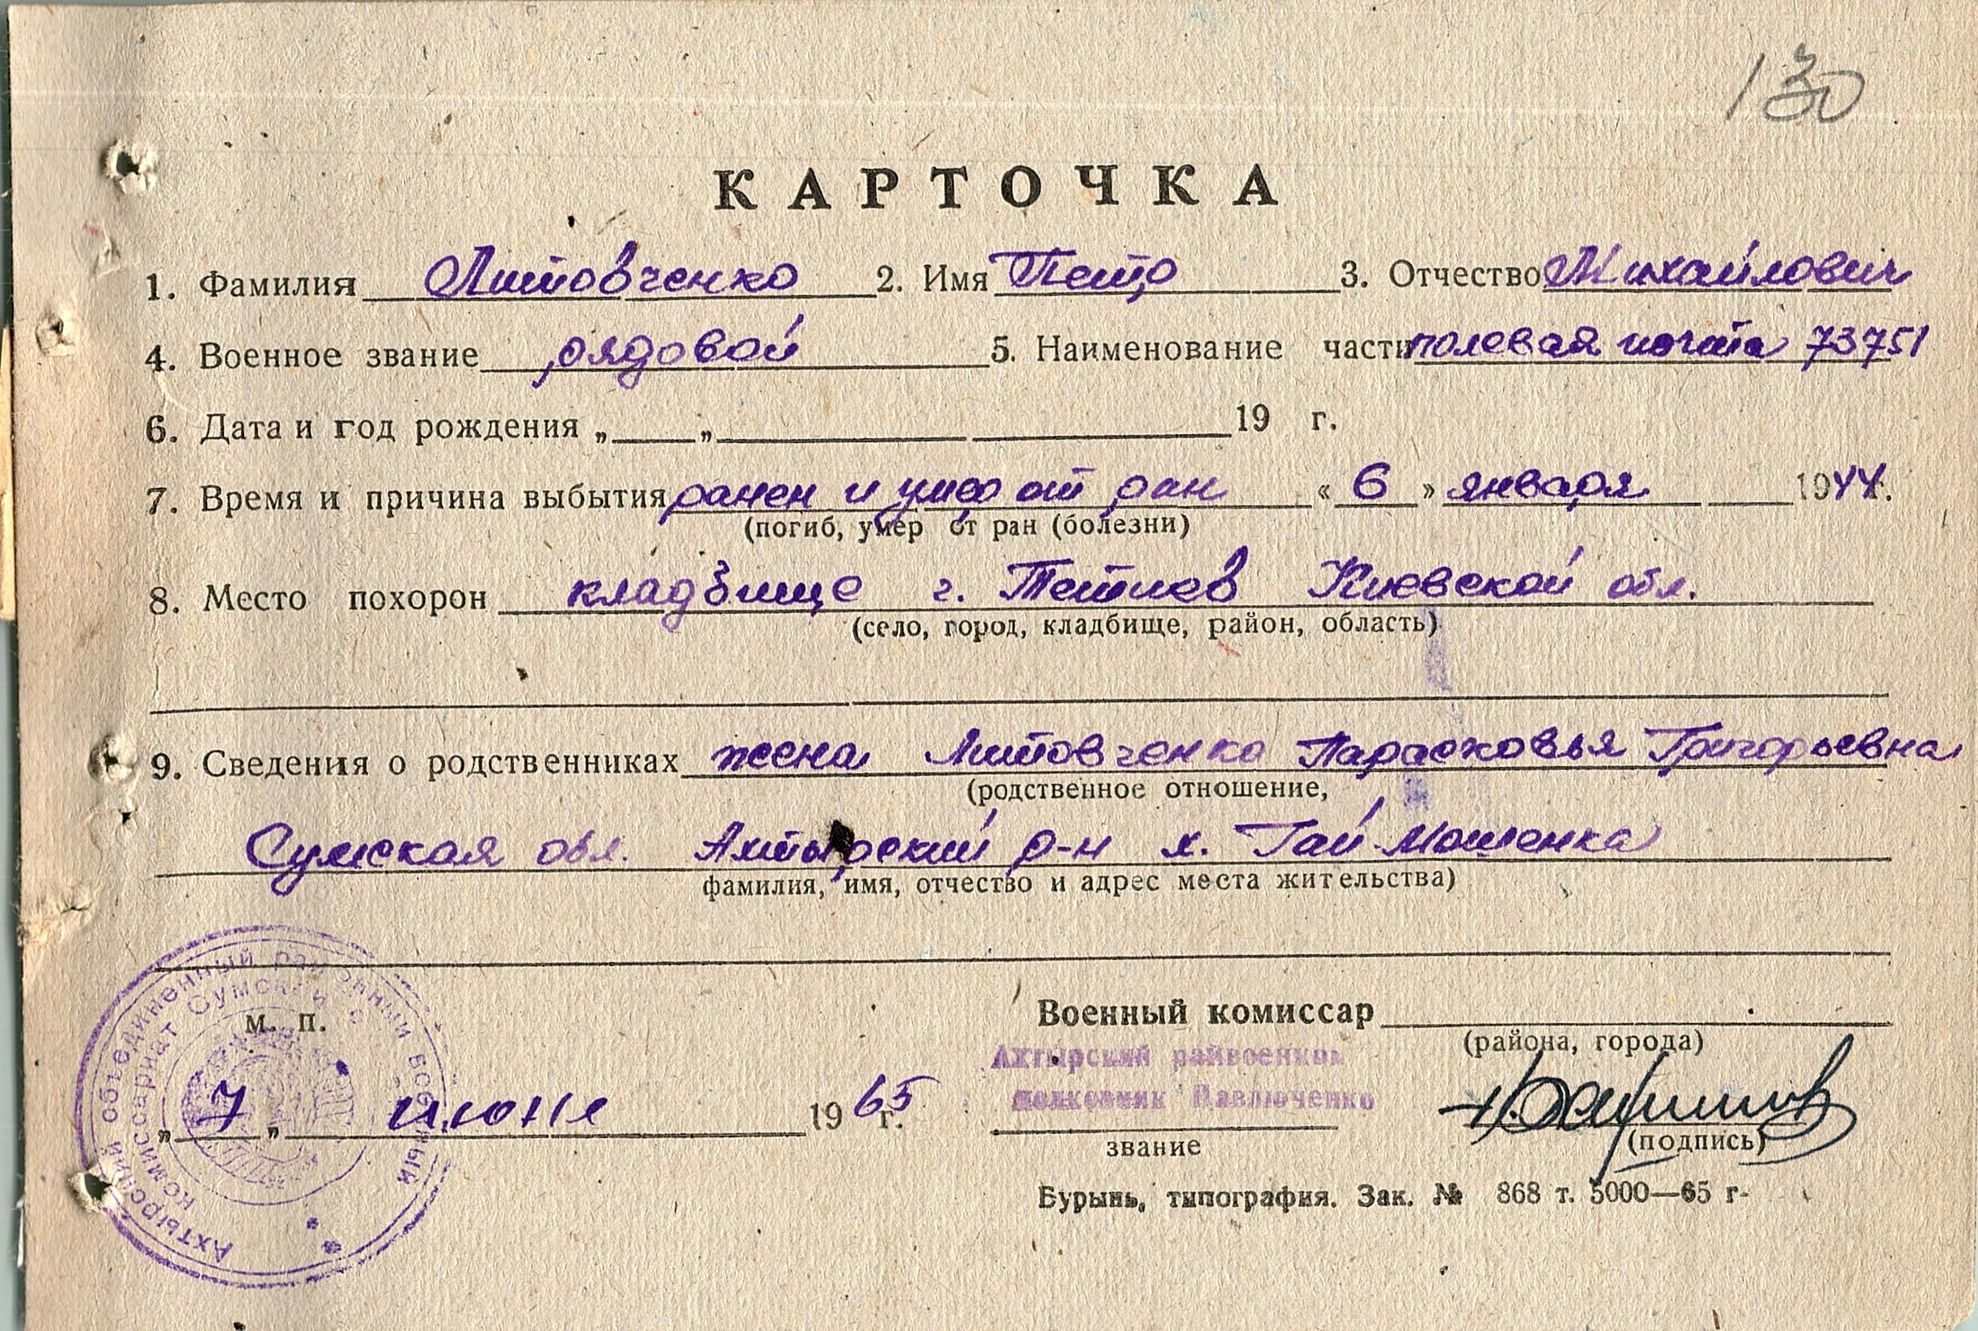 130
КАРТОЧКА
1. Фамилия Литовченко 2. Имя Петр 3. Отчество Михайлович
4. Военное звание рядовой 5. Наименование части полевая почта 73751
6. Дата и год рождения „ „ 19 г.
7. Время и причина выбытия ранен и умер от ран « 6 » января 1944 г.
(погиб, умер от ран (болезни)
8. Место похорон кладбище г. Тетиев Киевской обл.
(село, город, кладбище, район, область)
9. Сведения о родственниках жена Литовченко Парасковья Григорьевна
(родственное отношение,
Сумская обл. Ахтырский р-н х. Гай-Мошенка
фамилия, имя, отчество и адрес места жительства)
Ахтырский объединенный районный военный
комиссариат Сумской
м. п.
Военный комиссар
(района, города)
Ахтырский райвоенком
полковник Павлюченко
„ 7 „ июня 1965 г.
звание
(подпись)
Бурынь, типография. Зак. № 868 т. 5000—65 г-